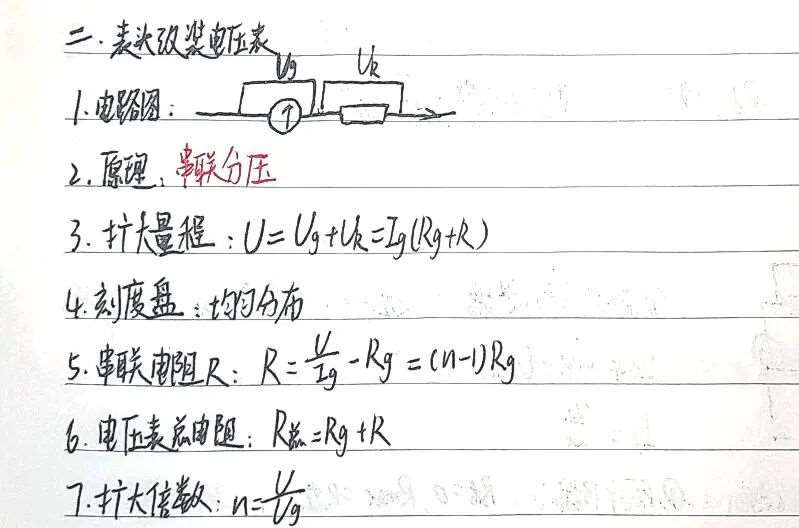 二.表头改装电压表
Ug UR
1.电路图:
2.原理:串联分压
3.扩大量程:U=Ug+UR=Ig(Rg+R)
4.刻度盘:均匀分布
5.串联电阻R:R=U/Ig-Rg=(n-1)Rg
6.电压表总电阻:R总=Rg+R
7.扩大倍数:n=U/Ug